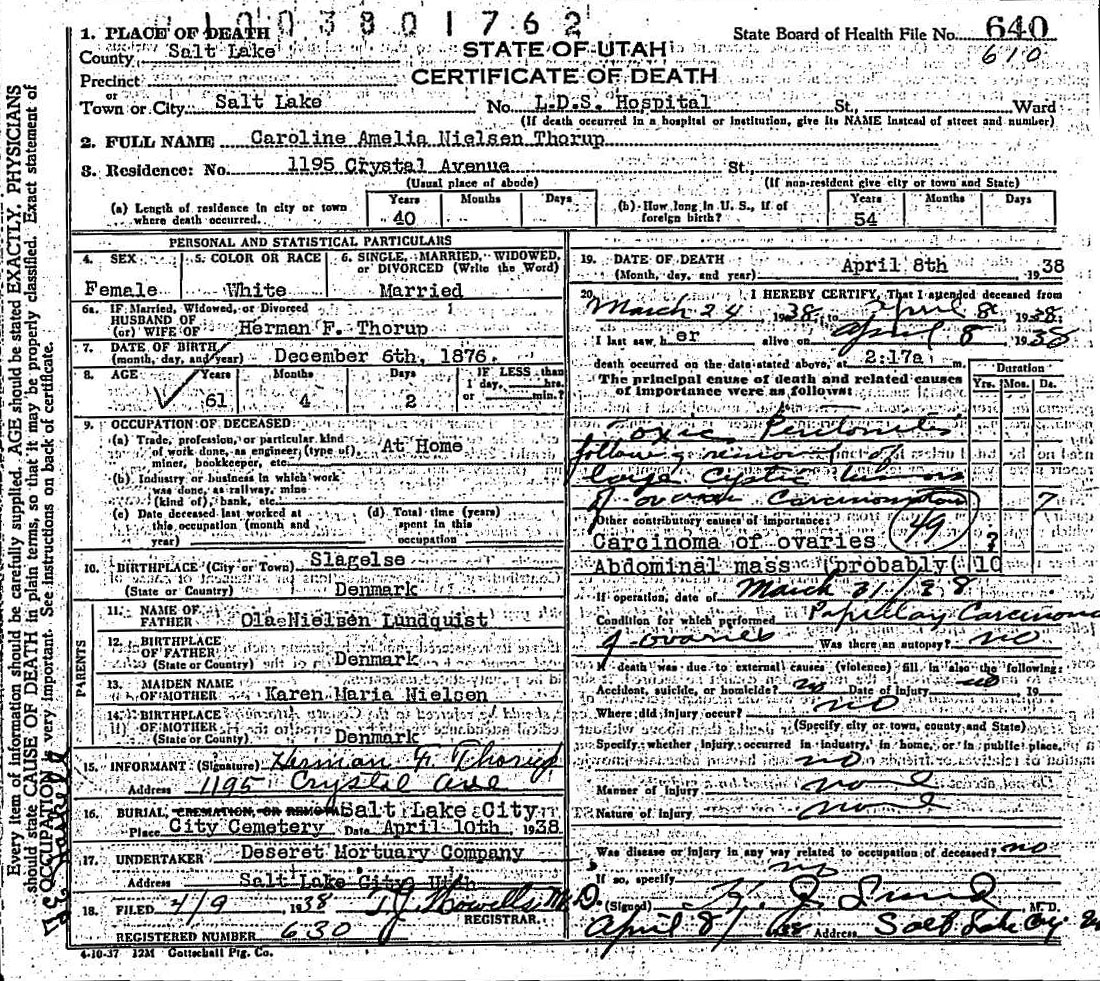 1 0 0 3 8 0 1 7 6 2
1. PLACE OF DEATH
County Salt Lake
STATE OF UTAH
State Board of Health File No. 640
610
Precinct
CERTIFICATE OF DEATH
or
Town or City Salt Lake No. L.D.S. Hospital St., Ward
(If death occurred in a hospital or institution, give its NAME instead of street and number)
2. FULL NAME Caroline Amelia Nielsen Thorup
3. Residence: No. 1195 Crystal Avenue St.,
(Usual place of abode) (If non-resident give city or town and State)
(a) Length of residence in city or town where death occurred. Years 40 Months Days
(b) How long in U. S., if of foreign birth? Years 54 Months Days
PERSONAL AND STATISTICAL PARTICULARS
4. SEX 5. COLOR OR RACE 6. SINGLE, MARRIED, WIDOWED, or DIVORCED (Write the Word)
Female White Married
6a. IF Married, Widowed, or Divorced
HUSBAND OF
(or) WIFE OF Herman F. Thorup
7. DATE OF BIRTH
(month, day, and year) December 6th, 1876.
8. AGE Years Months Days IF LESS than
1 day, hrs.
or min.?
61 4 2
9. OCCUPATION OF DECEASED
(a) Trade, profession, or particular kind
of work done, as engineer, (type of), At Home
miner, bookkeeper, etc.
(b) Industry or business in which work
was done, as railway, mine
(kind of), bank, etc.
(c) Date deceased last worked at
this occupation (month and
year)
(d) Total time (years)
spent in this
occupation
10. BIRTHPLACE (City or Town) Slagelse
(State or Country) Denmark
PARENTS
11. NAME OF
FATHER Ola Nielsen Lundquist
12. BIRTHPLACE
OF FATHER
(State or Country) Denmark
13. MAIDEN NAME
OF MOTHER Karen Maria Nielsen
14. BIRTHPLACE
OF MOTHER
(State or County) Denmark
15. INFORMANT (Signature) Herman F. Thorup
Address 1195 Crystal Ave
16. BURIAL, CREMATION, OR REMOVAL Salt Lake City
Place City Cemetery Date April 10th, 1938
17. UNDERTAKER Deseret Mortuary Company
Address Salt Lake City Utah
18. FILED 4/9 1938 T.J. Howells M.D.
REGISTRAR.
REGISTERED NUMBER 630
4-10-37 12M Gottschall Ptg. Co.
19. DATE OF DEATH
(Month, day, and year) April 8th 1938
20. I HEREBY CERTIFY, That I attended deceased from
March 24 1938, to April 8 1938
I last saw her alive on April 8 1938
death occurred on the date stated above, at 2:17a m.
The principal cause of death and related causes
of importance were as follows:
Duration
Yrs. Mos. Ds.
Toxic Peritonitis
following removal of
large Cystic tumors
of ovaries 7
Other contributory causes of importance: 49
Carcinoma of ovaries ?
Abdominal mass (probably( 10
If operation, date of March 31/38
Condition for which performed Papillary Carcinoma
of ovaries Was there an autopsy? no
If death was due to external causes (violence) fill in also the following:
Accident, suicide, or homicide? no Date of injury no , 19
Where did injury occur? no
(Specify city or town, county and State)
Specify whether injury occurred in industry, in home, or in public place.
no
Manner of injury none
Nature of injury none
Was disease or injury in any way related to occupation of deceased? no
If so, specify no
(Signed) M. D.
April 8/ Address Salt Lake City
Every item of information should be carefully supplied. AGE should be stated EXACTLY. PHYSICIANS
should state CAUSE OF DEATH in plain terms, so that it may be properly classified. Exact statement of
OCCUPATION is very important. See instructions on back of certificate.